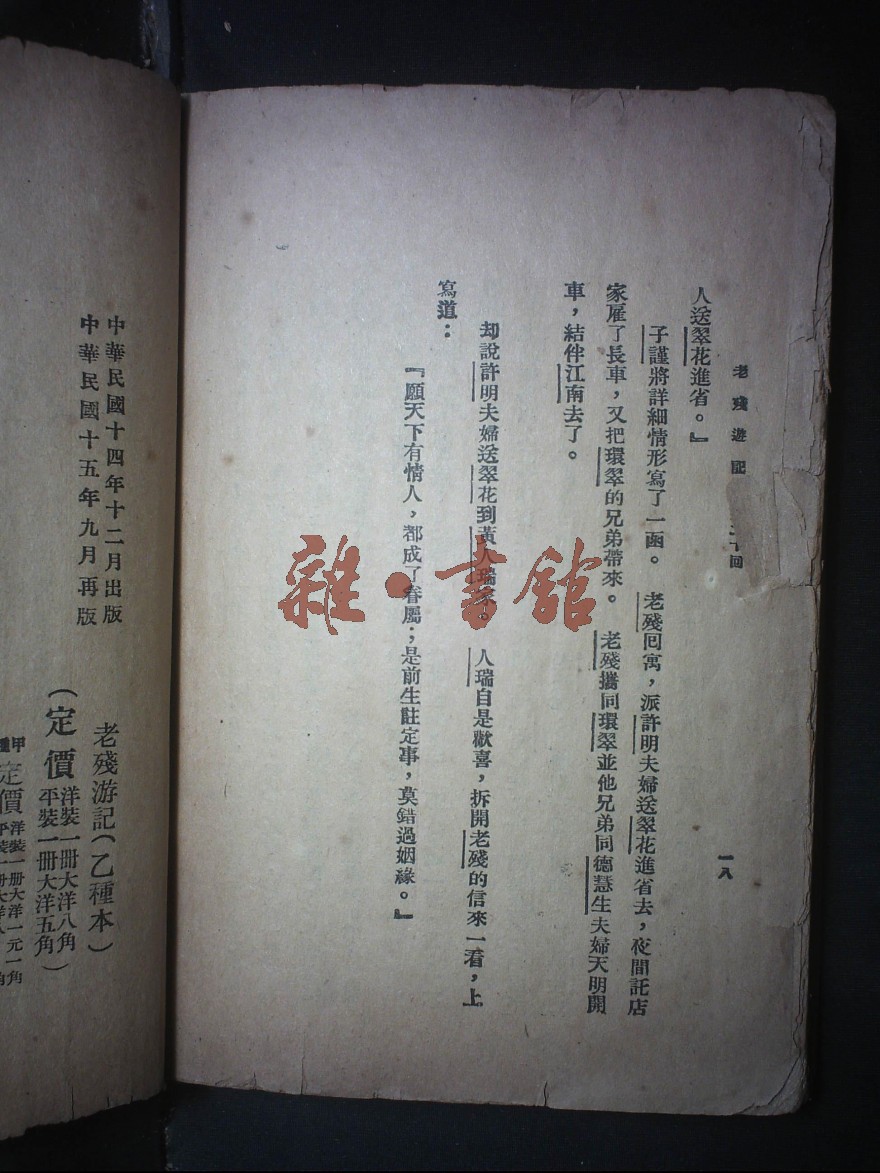 老殘遊記
回
一八
人送翠花進省。』
子謹將詳細情形寫了一函。　老殘回寓，派許明夫婦送翠花進省去，夜間託店
家雇了長車，又把環翠的兄弟帶來。　老殘攜同環翠並他兄弟同德慧生夫婦天明開
車，結伴江南去了。
却說許明夫婦送翠花到黃人瑞家。　人瑞自是歡喜，拆開老殘的信來一看，上
寫道：
『願天下有情人，都成了眷屬；是前生註定事，莫錯過姻緣。』
雜·書館
中華民國十四年十二月出版
中華民國十五年九月再版
老殘游記（乙種本）
（定價洋裝一冊大洋八角
平裝一冊大洋五角）
甲種定價洋裝一冊大洋一元一角
平裝一冊大洋八角